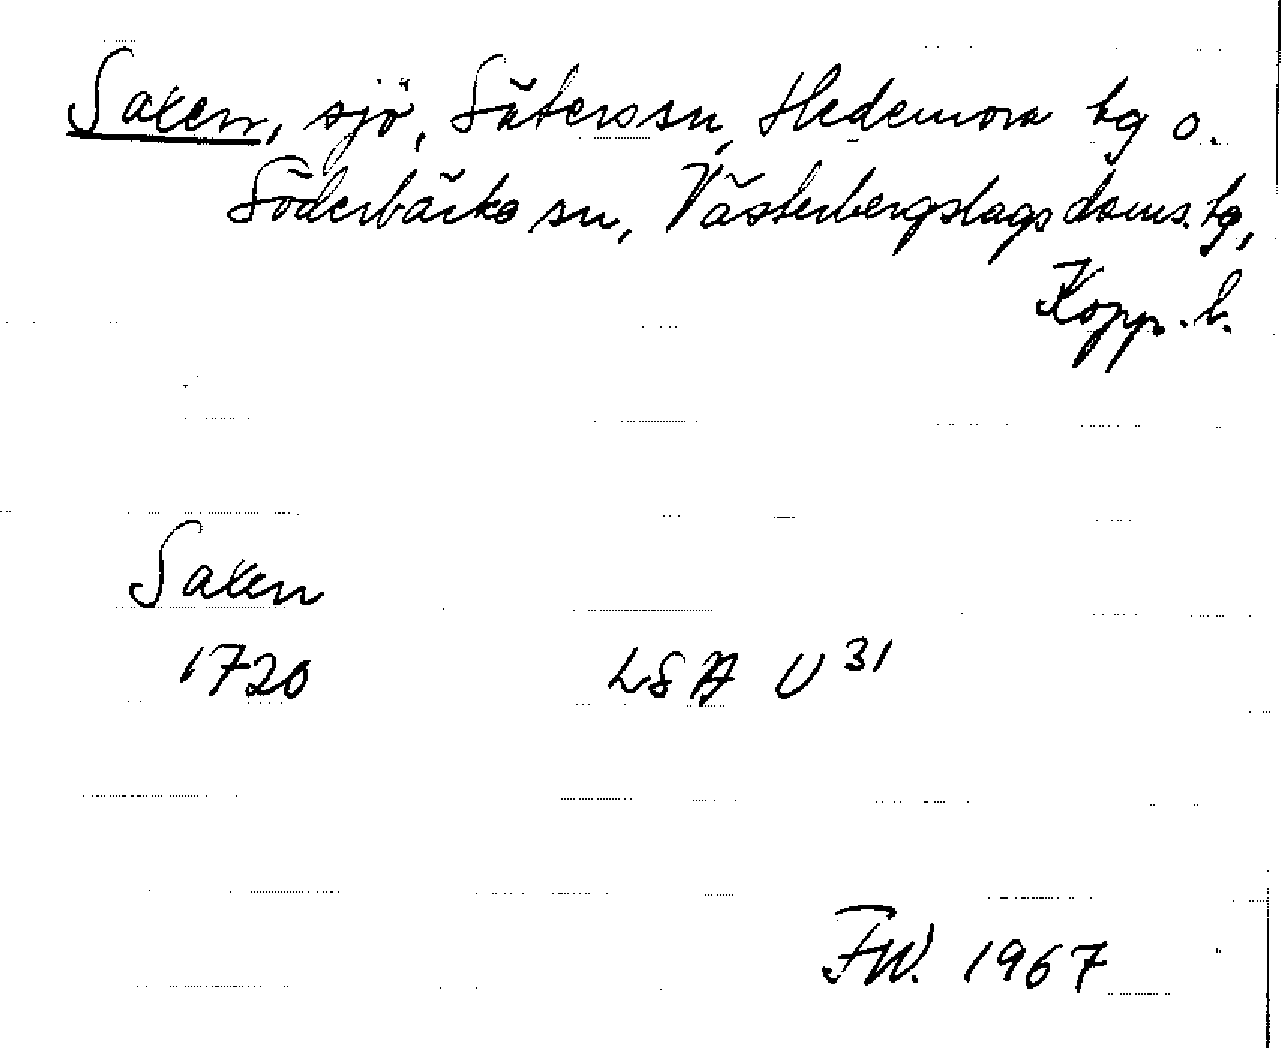 Saxen, sjö, Säters sn, Hedemora tg o.
Söderbärke sn, Västerbergslags doms. tg,
Kopp. l.
Saxen
1720 LSA U 31
FW. 1967